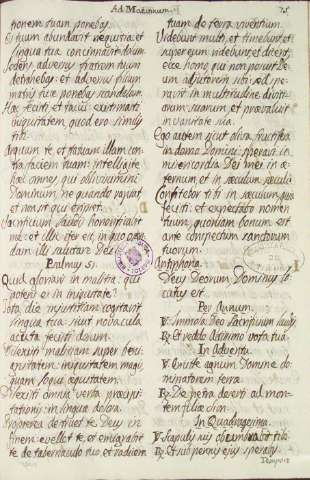 Ad Matutinum.
75
tionem tuam ponebas.
Os tuum abundavit nequitia: et
lingua tua concinnabat dolum
Sedens adversus fratrem tuum
detrahebas et adversus filium
matris tuæ ponebas scandalum
Hæc fecisti et tacui existimasti
iniquitatem, quod ero similis
tibi.
Arguam te et statuam illam con-
tra faciem tuam: intelligite
hæc omnes, qui obliviscimini
Dominum, ne quando rapiat,
et non sit qui eripiat.
Sacrificium laudis honorificabit
me: et illic iter est, in quo osten-
dam illi salutare Dei.
Psalmus 51.
Quid gloriaris in malitia: qui
potens es in iniquitate?
Tota die injustitiam cogitavit
lingua tua: sicut novacula
acuta fecisti dolum.
Dilexisti malitiam super beni-
gnitatem iniquitatem magis,
quam loqui æquitatem.
Dilexisti omnia verba præcipi-
tationis in lingua dolosa.
Propterea destruet te Deus in
finem: evellet te, et emigrabit
te de tabernaculo tuo et radicem
tuam de terra viventium.
Videbunt justi, et timebunt, et
super eum ridebunt, et dicent,
ecce homo qui non posuit De-
um adjutorem sibi: sed spe-
ravit in multitudine diviti-
arum suarum et prævaluit
in vanitate sua.
Ego autem sicut oliva fructifera
in domo Domini speravi in
misericordia Dei mei in æ-
ternum et in sæculum sæculi
Confitebor tibi in sæculum, quia
fecisti: et expectabo nomen
tuum, quoniam bonum est
ante conspectum sanctorum
tuorum.
Antiphona.
Deus Deorum Dominus lo-
catus est.
Per Annum.
℣. Immola Deo sacrificium laudis
℟. Et redde Altissimo vota tua.
In Adventu.
℣. Emitte agnum Domine do-
minatorem terræ.
℟. De petra deserti ad mon-
tem filiæ sion.
In Quadragesima.
℣. Scapulis suis obumbrabit tibi
℟. Et sub pennis ejus sperabis.